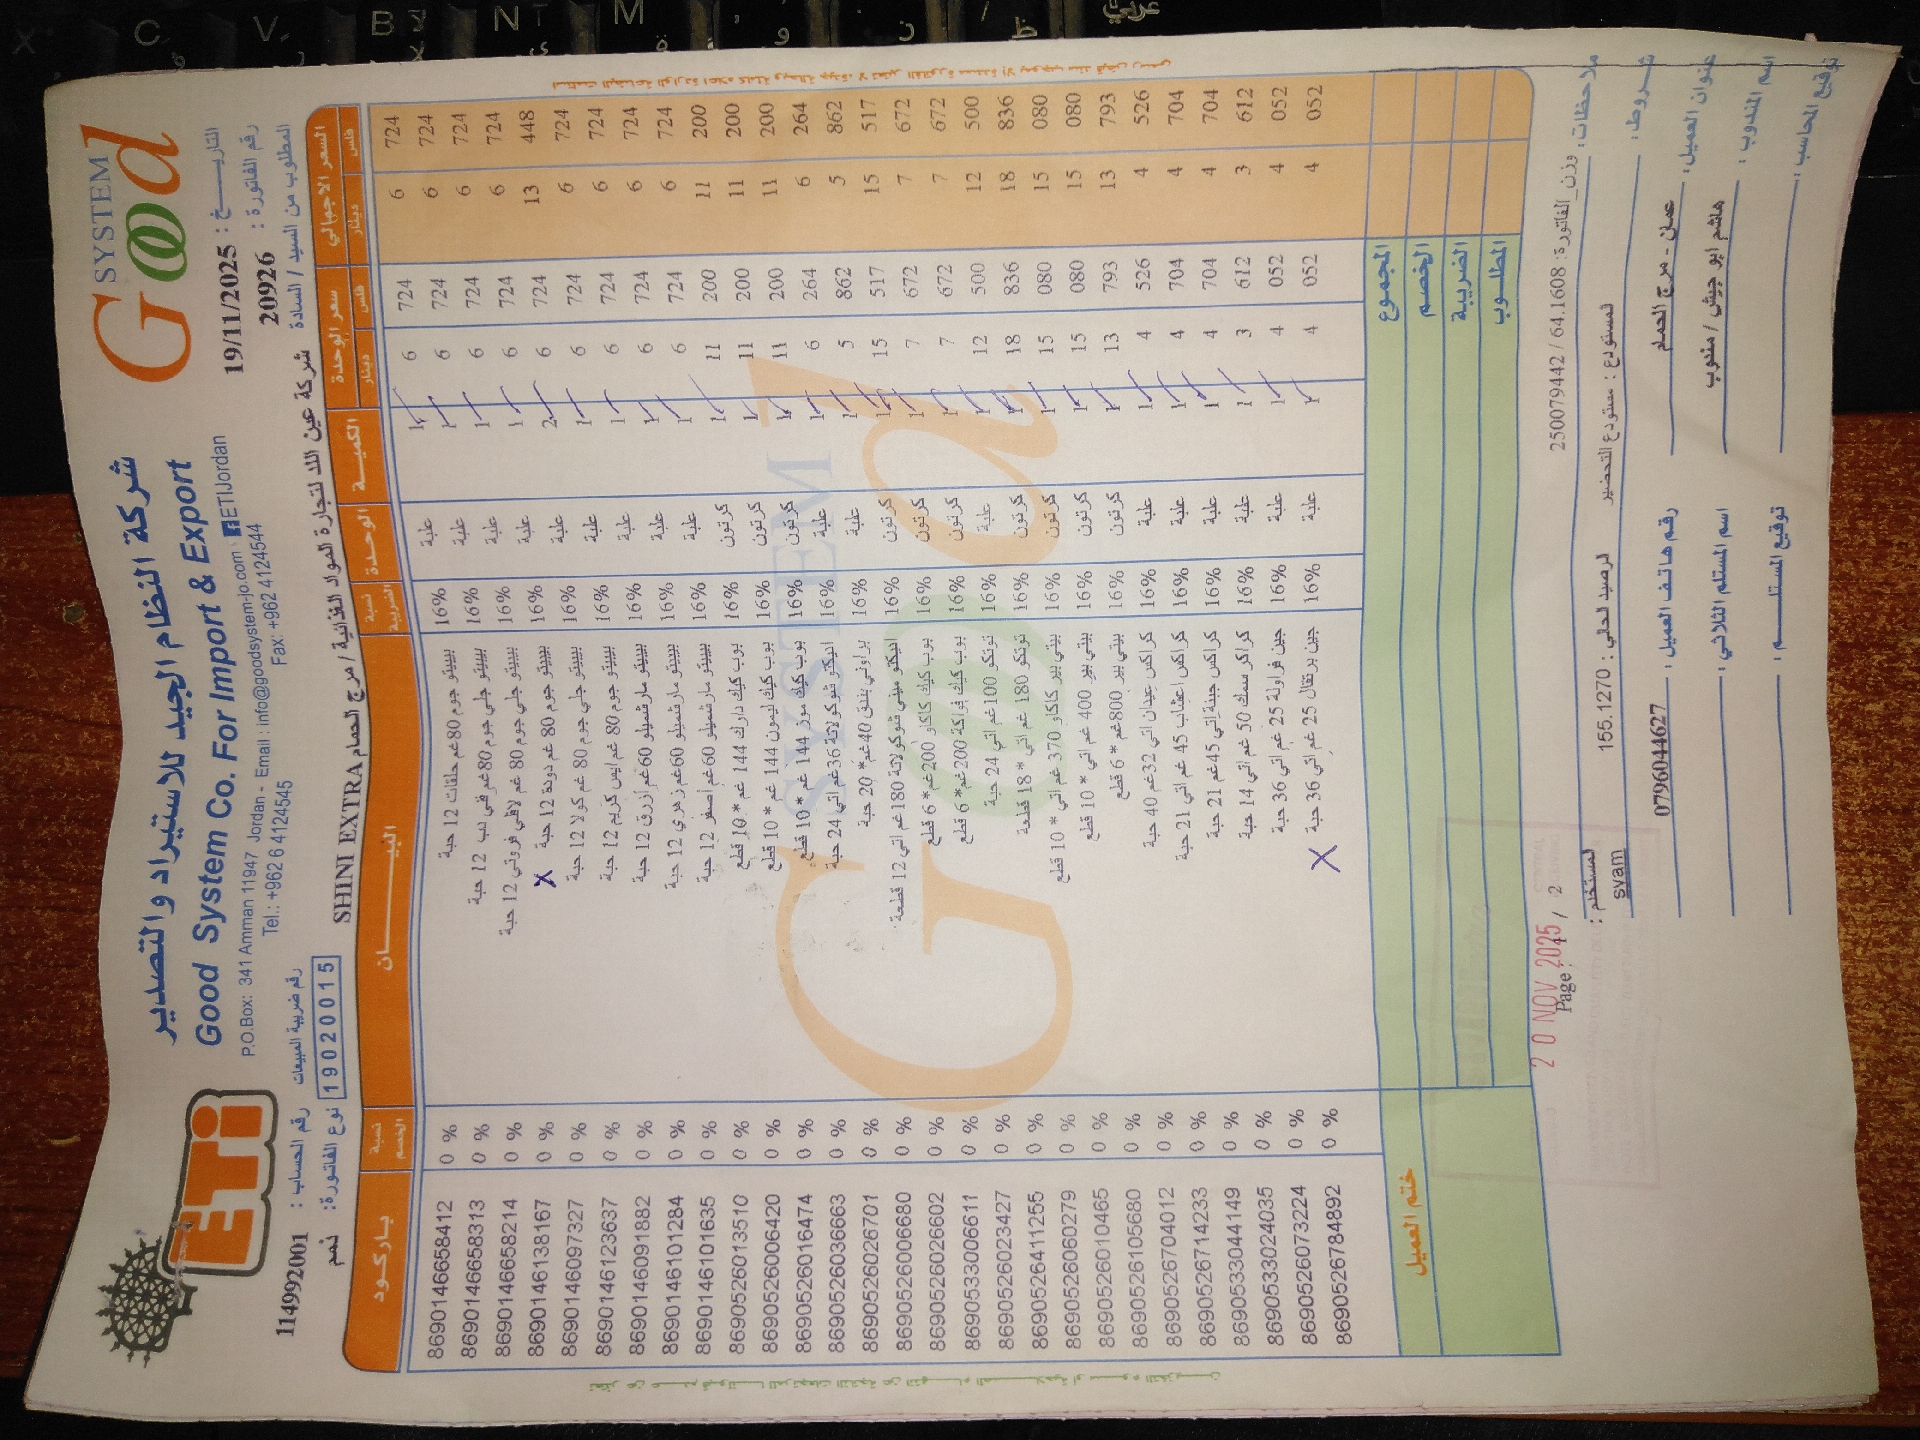 شركة النظام الجيد للاستيراد والتصدير
Good System Co. For Import & Export
P.O.Box: 341 Amman 11947 Jordan - Email : info@goodsystem-jo.com ETIJordan
Tel.: +962 6 4124545 Fax: +962 4124544
ETi
Good SYSTEM
التاريـــخ : 19/11/2025
رقم الفاتورة : 20926
المطلوب من السيد / السادة شركة عين اللا لتجارة المواد الغذائية / مرج الحمام SHINI EXTRA
رقم الحساب : 11492001
رقم ضريبة المبيعات 19020015
نوع الفاتورة: نمم
باركود | نسبة الخصم | البيـــــان | نسبة الضريبة | الوحدة | الكمية | سعر الوحدة دينار فلس | السعر الاجمالي دينار فلس
8690146658412 0 % بيبيتو جوم 80غم حلقات 12 حبة 16% علبة 1 6 724 6 724
8690146658313 0 % بيبيتو جلي جوم 80غم في دب 12 حبة 16% علبة 1 6 724 6 724
8690146658214 0 % بيبيتو جلي جوم 80 غم لافلي فروتي 12 حبة 16% علبة 1 6 724 6 724
8690146138167 0 % بيبيتو جوم 80 غم دودة 12 حبة X 16% علبة 1 6 724 6 724
8690146097327 0 % بيبيتو جلي جوم 80 غم كولا 12 حبة 16% علبة 2 6 724 13 448
8690146123637 0 % بيبيتو جوم 80 غم ايس كريم 12 حبة 16% علبة 1 6 724 6 724
8690146091882 0 % بيبيتو مارشميلو 60غم ازرق 12 حبة 16% علبة 1 6 724 6 724
8690146101284 0 % بيبيتو مارشميلو 60غم زهري 12 حبة 16% علبة 1 6 724 6 724
8690146101635 0 % بيبيتو مارشميلو 60غم اصفر 12 حبة 16% علبة 1 6 724 6 724
8690526013510 0 % بوب كيك دارك 144 غم * 10 قطع 16% كرتون 1 11 200 11 200
8690526006420 0 % بوب كيك ليمون 144 غم * 10 قطع 16% كرتون 1 11 200 11 200
8690526016474 0 % بوب كيك موز 144 غم * 10 قطع 16% كرتون 1 11 200 11 200
8690526036663 0 % اتيكتو شوكولاتة 36غم اتي 24 حبة 16% علبة 1 6 264 6 264
8690526026701 0 % براوني بندق 40غم* 20 حبة 16% علبة 1 5 862 5 862
8690526006680 0 % اتيكتو ميني شوكولاتة 180 غم اتي 12 قطعة 16% كرتون 1 15 517 15 517
8690526026602 0 % بوب كيك كاكاو 200غم* 6 قطع 16% كرتون 1 7 672 7 672
8690533006611 0 % بوب كيك فواكة 200غم* 6 قطع 16% كرتون 1 7 672 7 672
8690526023427 0 % توتكو 100غم اتي 24 حبة 16% علبة 1 12 500 12 500
8690526411255 0 % توتكو 180 غم اتي* 18 قطعة 16% كرتون 1 18 836 18 836
8690526060279 0 % بيتي بير كاكاو 370 غم اتي * 10 قطع 16% كرتون 1 15 080 15 080
8690526010465 0 % بيتي بير 400 غم اتي * 10 قطع 16% كرتون 1 15 080 15 080
8690526105680 0 % بيتي بير 800غم * 6 قطع 16% كرتون 1 13 793 13 793
8690526704012 0 % كراكس عيدان اتي 32غم 40 حبة 16% علبة 1 4 526 4 526
8690526714233 0 % كراكس اعشاب 45 غم اتي 21 حبة 16% علبة 1 4 704 4 704
8690533044149 0 % كراكس جبنة اتي 45غم 21 حبة 16% علبة 1 4 704 4 704
8690533024035 0 % كراكر سمك 50 غم اتي 14 حبة 16% علبة 1 3 612 3 612
8690526073224 0 % جين فراولة 25 غم اتي 36 حبة 16% علبة 1 4 052 4 052
8690526784892 0 % جين برتقال 25 غم اتي 36 حبة X 16% علبة 1 4 052 4 052
المجموع
الخصم
الضريبة
المطلوب
ختم العميل
20 NOV 2025
Page 1 / 2
ملاحظات : وزن_الفاتورة: 64.1608 / 250079442
شروط : لمستودع : مستودع التحضير لرصيد لحالي : 155.1270 لمستخدم : syam
عنوان العميل : عمان - مرج الحمام رقم هاتف العميل : 0796044627
اسم المندوب : هاشم ابو جيش / مندوب اسم المستلم الثلاثي :
توقيع المحاسب : توقيع المستلـــم :